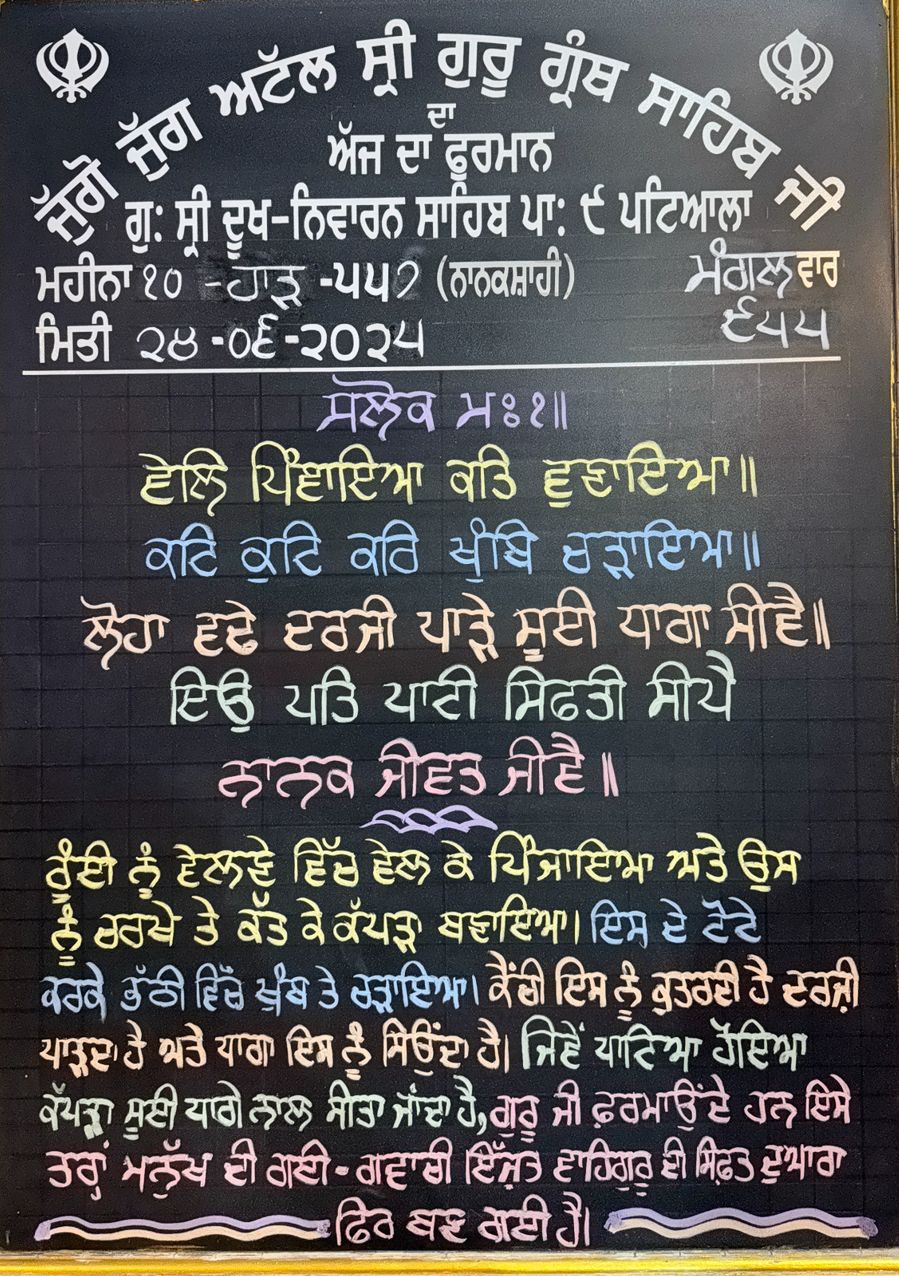 ਜੁੱਗੋ ਜੁੱਗ ਅਟੱਲ ਸ੍ਰੀ ਗੁਰੂ ਗ੍ਰੰਥ ਸਾਹਿਬ ਜੀ
ਦਾ
ਅੱਜ ਦਾ ਫੂਰਮਾਨ
ਗੁ: ਸ੍ਰੀ ਦੂਖ-ਨਿਵਾਰਨ ਸਾਹਿਬ ਪਾ: ੯ ਪਟਿਆਲਾ
ਮਹੀਨਾ ੧੦ -ਹਾੜ -੫੫੭ (ਨਾਨਕਸ਼ਾਹੀ) ਮੰਗਲਵਾਰ
ਮਿਤੀ ੨੪-੦੬-੨੦੨੫ ੯੫੫
ਸਲੋਕ ਮਃ੧॥
ਵੇਲਿ ਪਿੰਞਾਇਆ ਕਤਿ ਵੁਣਾਇਆ॥
ਕਟਿ ਕੁਟਿ ਕਰਿ ਖੁੰਬਿ ਚੜਾਇਆ॥
ਲੋਹਾ ਵਢੇ ਦਰਜੀ ਪਾੜੇ ਸੂਈ ਧਾਗਾ ਸੀਵੈ॥
ਇਉ ਪਤਿ ਪਾਟੀ ਸਿਫਤੀ ਸੀਪੈ
ਨਾਨਕ ਜੀਵਤ ਜੀਵੈ॥
ਰੂੰਈ ਨੂੰ ਵੇਲਣੇ ਵਿੱਚ ਵੇਲ ਕੇ ਪਿੰਜਾਇਆ ਅਤੇ ਉਸ
ਨੂੰ ਚਰਖੇ ਤੇ ਕੱਤ ਕੇ ਕੱਪੜਾ ਬਣਾਇਆ। ਇਸ ਦੇ ਟੋਟੇ
ਕਰਕੇ ਭੱਠੀ ਵਿੱਚ ਖੁੰਬ ਤੇ ਚੜਾਇਆ। ਕੈਂਚੀ ਇਸ ਨੂੰ ਕੁਤਰਦੀ ਹੈ ਦਰਜ਼ੀ
ਪਾੜਦਾ ਹੈ ਅਤੇ ਧਾਗਾ ਇਸ ਨੂੰ ਸਿਉਂਦਾ ਹੈ। ਜਿਵੇਂ ਪਾਟਿਆ ਹੋਇਆ
ਕੱਪੜਾ ਸੂਈ ਧਾਗੇ ਨਾਲ ਸੀਤਾ ਜਾਂਦਾ ਹੈ, ਗੁਰੂ ਜੀ ਫ਼ਰਮਾਉਂਦੇ ਹਨ ਇਸੇ
ਤਰਾਂ ਮਨੁੱਖ ਦੀ ਗਈ-ਗਵਾਚੀ ਇੱਜ਼ਤ ਵਾਹਿਗੁਰੂ ਦੀ ਸਿਫ਼ਤ ਦੁਆਰਾ
ਫਿਰ ਬਣ ਗਈ ਹੈ।